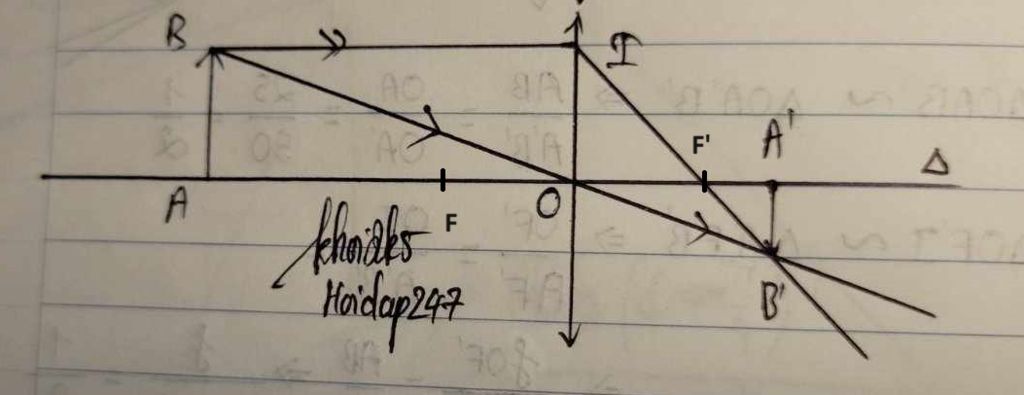 B
I
F'
A'
Δ
A
F
O
khoi2k5
Hoidap247
B'